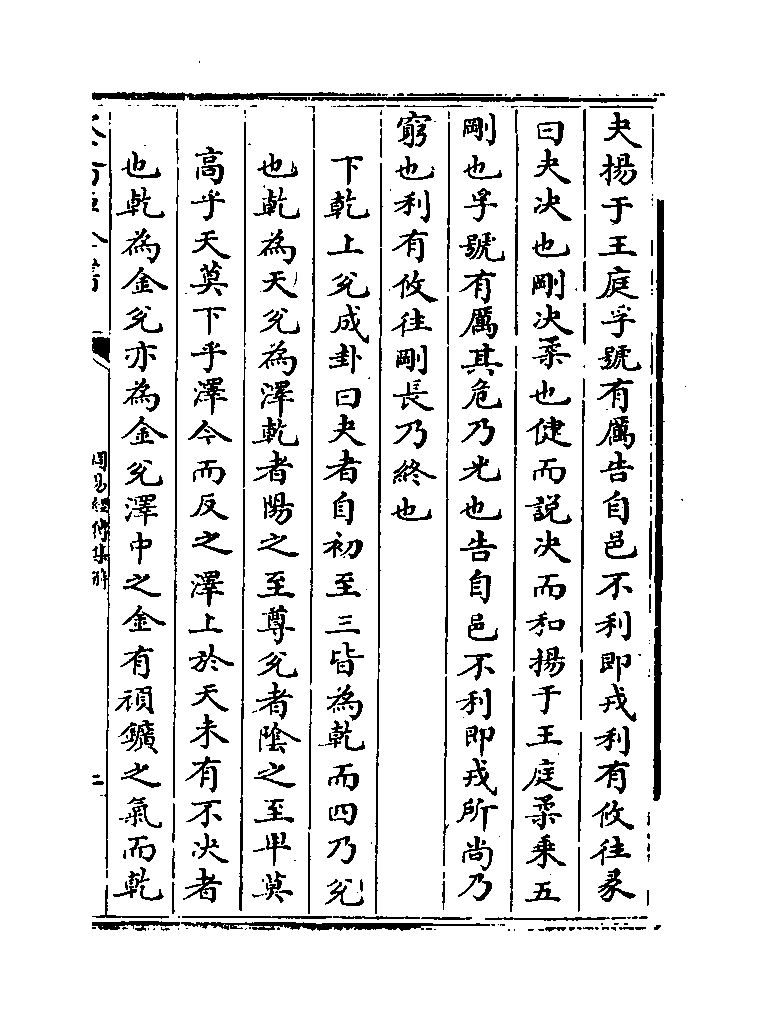 夬揚于王庭孚號有厲告自邑不利即戎利有攸往彖
曰夬决也剛决柔也健而説决而和揚于王庭柔乗五
剛也孚號有厲其危乃光也告自邑不利即戎所尚乃
窮也利有攸往剛長乃終也
下乾上兊成卦曰夬者自初至三皆為乾而四乃兊
也乾為天兊為澤乾者陽之至尊兊者陰之至卑莫
高乎天莫下乎澤今而反之澤上於天未有不决者
也乾為金兊亦為金兊澤中之金有頑鑛之氣而乾
周易經傳集解
二